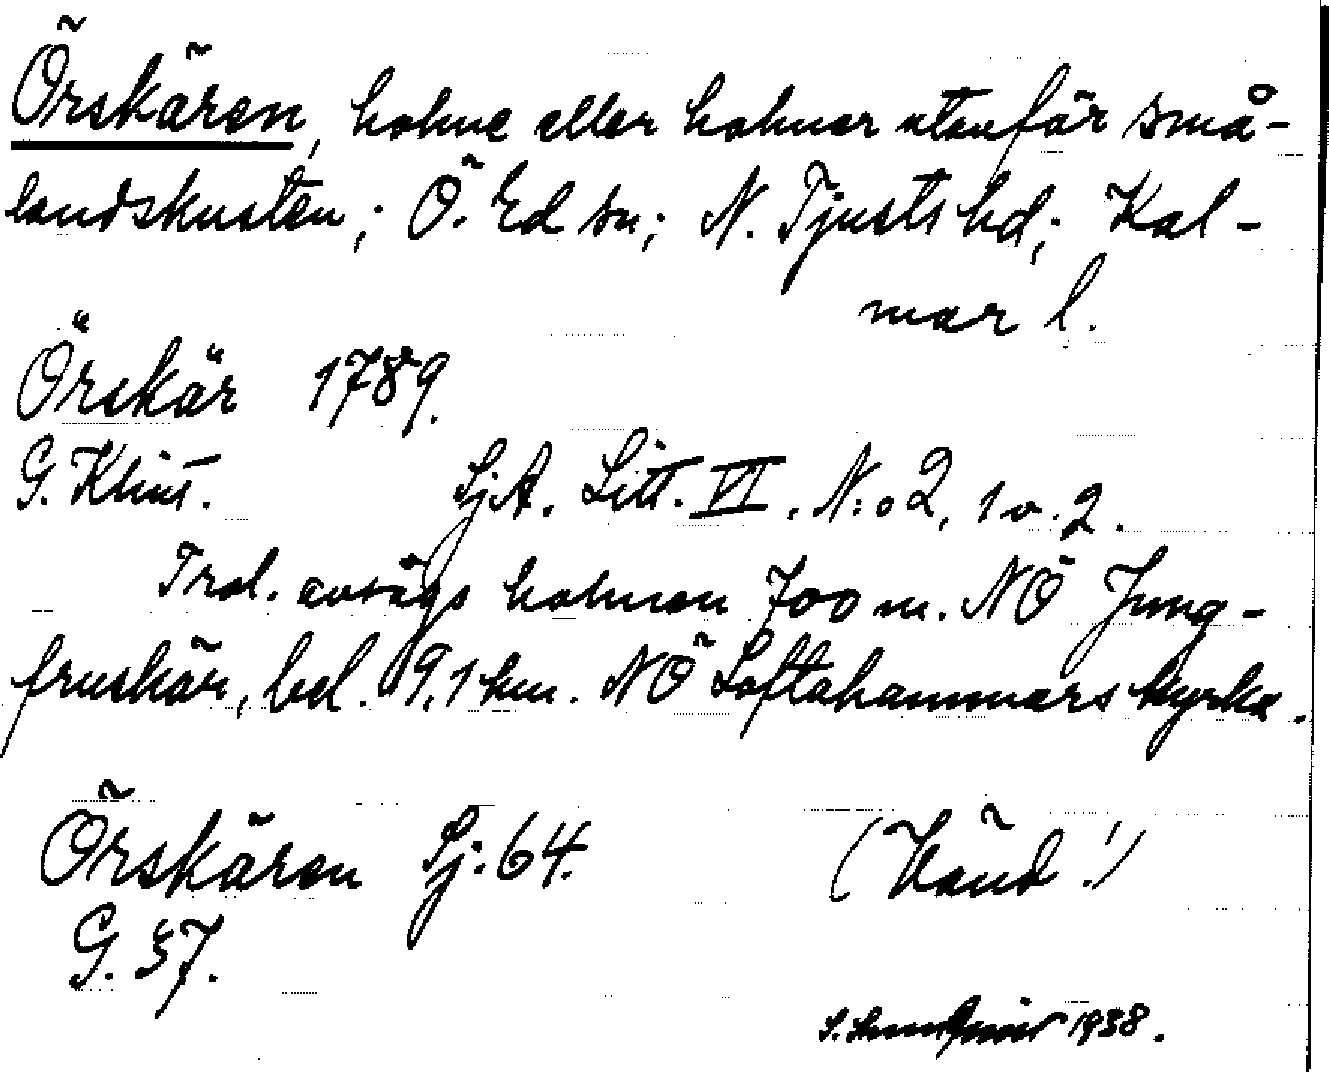 Örskären, holme eller holmar utanför små-
landskusten; Ö. Ed sn; N. Tjusts hd; Kal-
mar l.
Örskär 1789.
G. Klint. SjA. Litt. VI. N:o 2, 1 o. 2.
Trol. avsågs holmen 700 m. NÖ Jung-
fruskär, bel. 9,1 km. NÖ Loftahammars kyrka.
Örskären Sj: 64. (Vänd!)
G. 37.
1938.